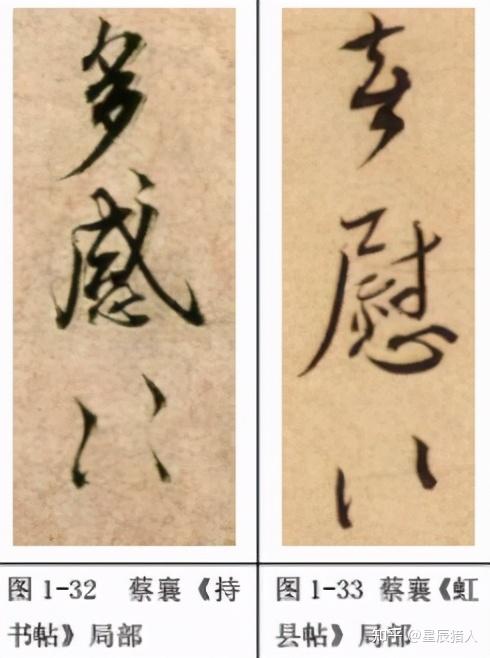 多感
喜慰
图1-32 蔡襄《持
书帖》局部
图1-33 蔡襄《虹
县帖》局部
知乎 @星辰猎人